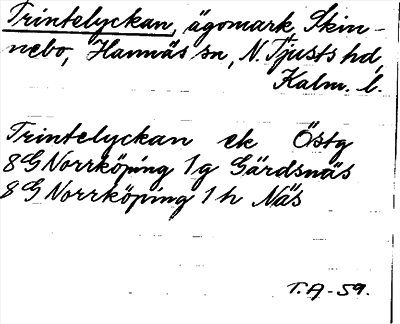 Trintelyckan, ägomark, Skin-
nebo, Hannäs sn, N. Tjusts hd,
Kalm. l.
Trintelyckan ek Östg
8G Norrköping 1g Gärdsnäs
8G Norrköping 1h Näs
T.A-59.